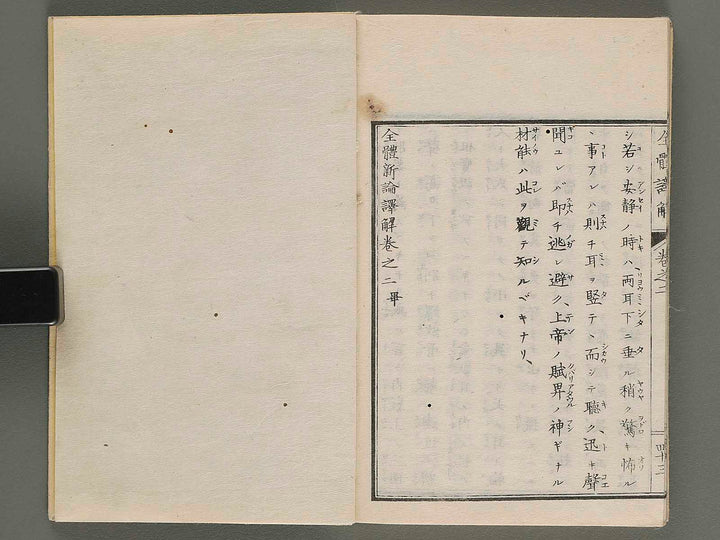 全體譯解
卷之二
四十三
シ若シ安静ノ時ハ両耳下ニ垂ル稍ク驚キ怖ル
ヽ事アレハ則チ耳ヲ竪テヽ而シテ聴ク迅キ聲
聞ユレバ即チ逃レ避ク、上帝ノ賦畀ノ神ギナル
材能ハ此ヲ觀テ知ルベキナリ、
全體新論譯解卷之二 畢